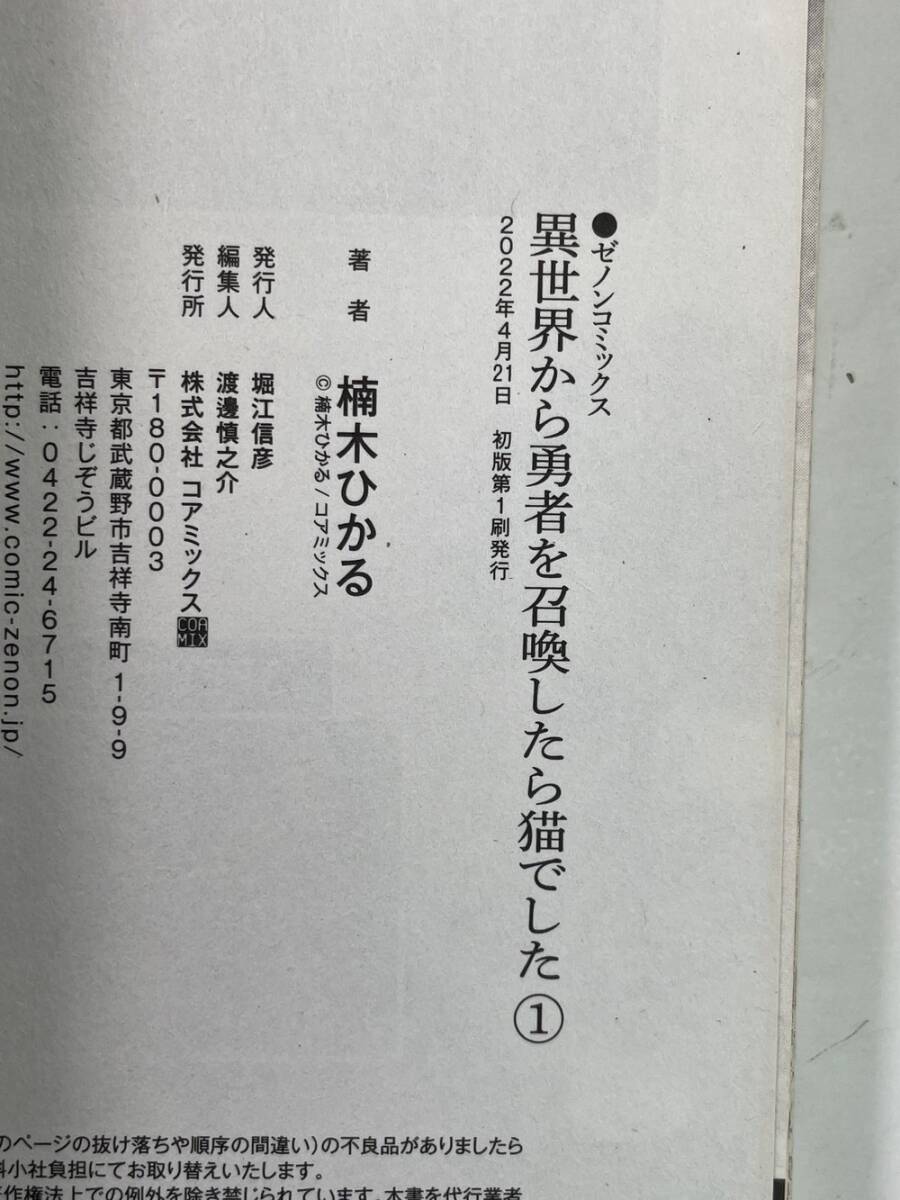 ●ゼノンコミックス
異世界から勇者を召喚したら猫でした①
2022年4月21日 初版第1刷発行
著者 楠木ひかる
©楠木ひかる/コアミックス
発行人 堀江信彦
編集人 渡邊慎之介
発行所 株式会社 コアミックス
COA
MIX
〒180-0003
東京都武蔵野市吉祥寺南町 1-9-9
吉祥寺じぞうビル
電話:0422-24-6715
http://www.comic-zenon.jp/
のページの抜け落ちや順序の間違い)の不良品がありましたら
料小社負担にてお取り替えいたします。
作権法上での例外を除き禁じられています。本書を代行業者